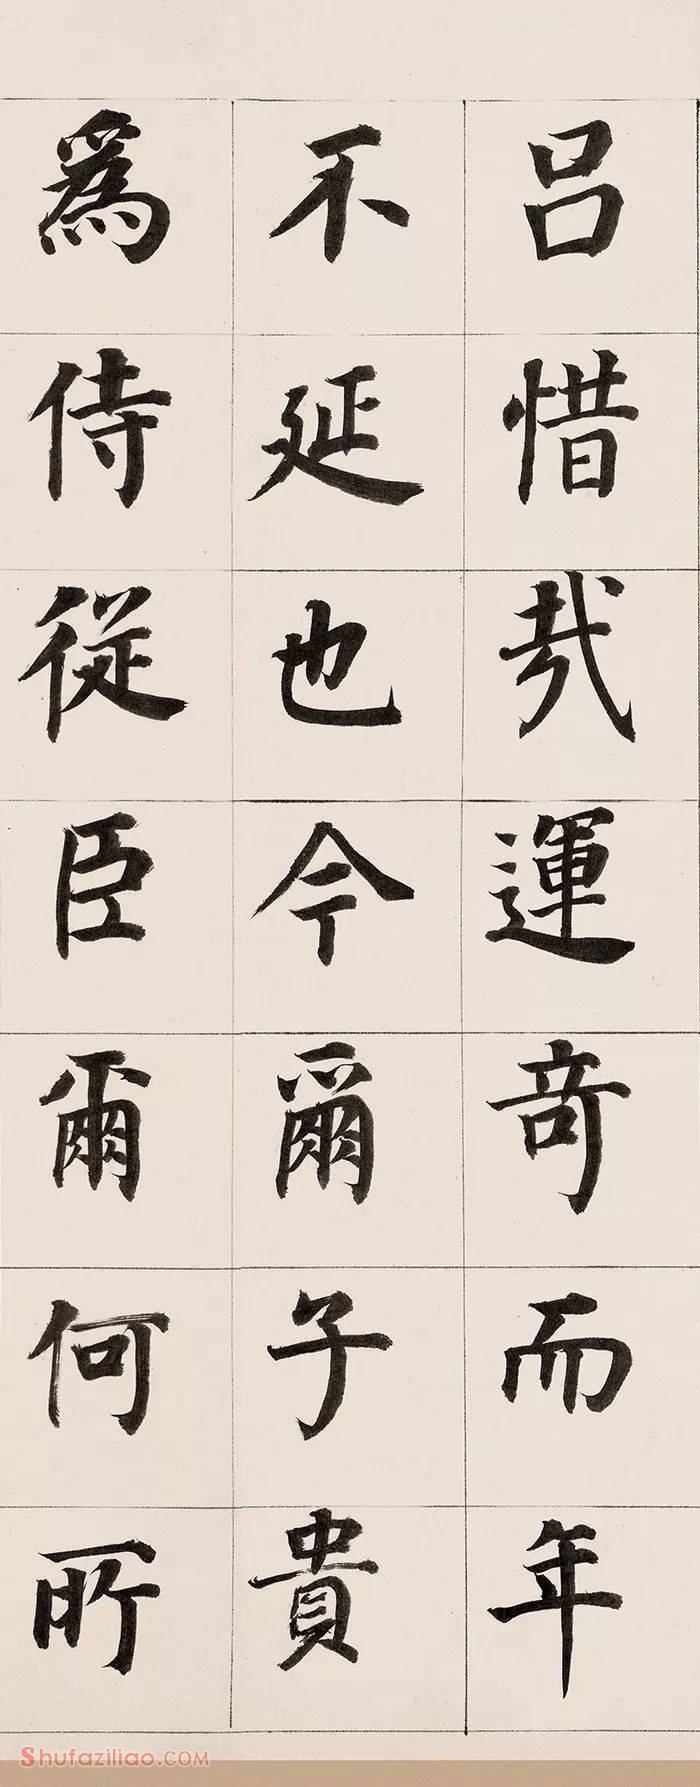 吕惜哉運奇而年
不延也今爾子貴
為侍從臣爾何所
Shufaziliao.COM